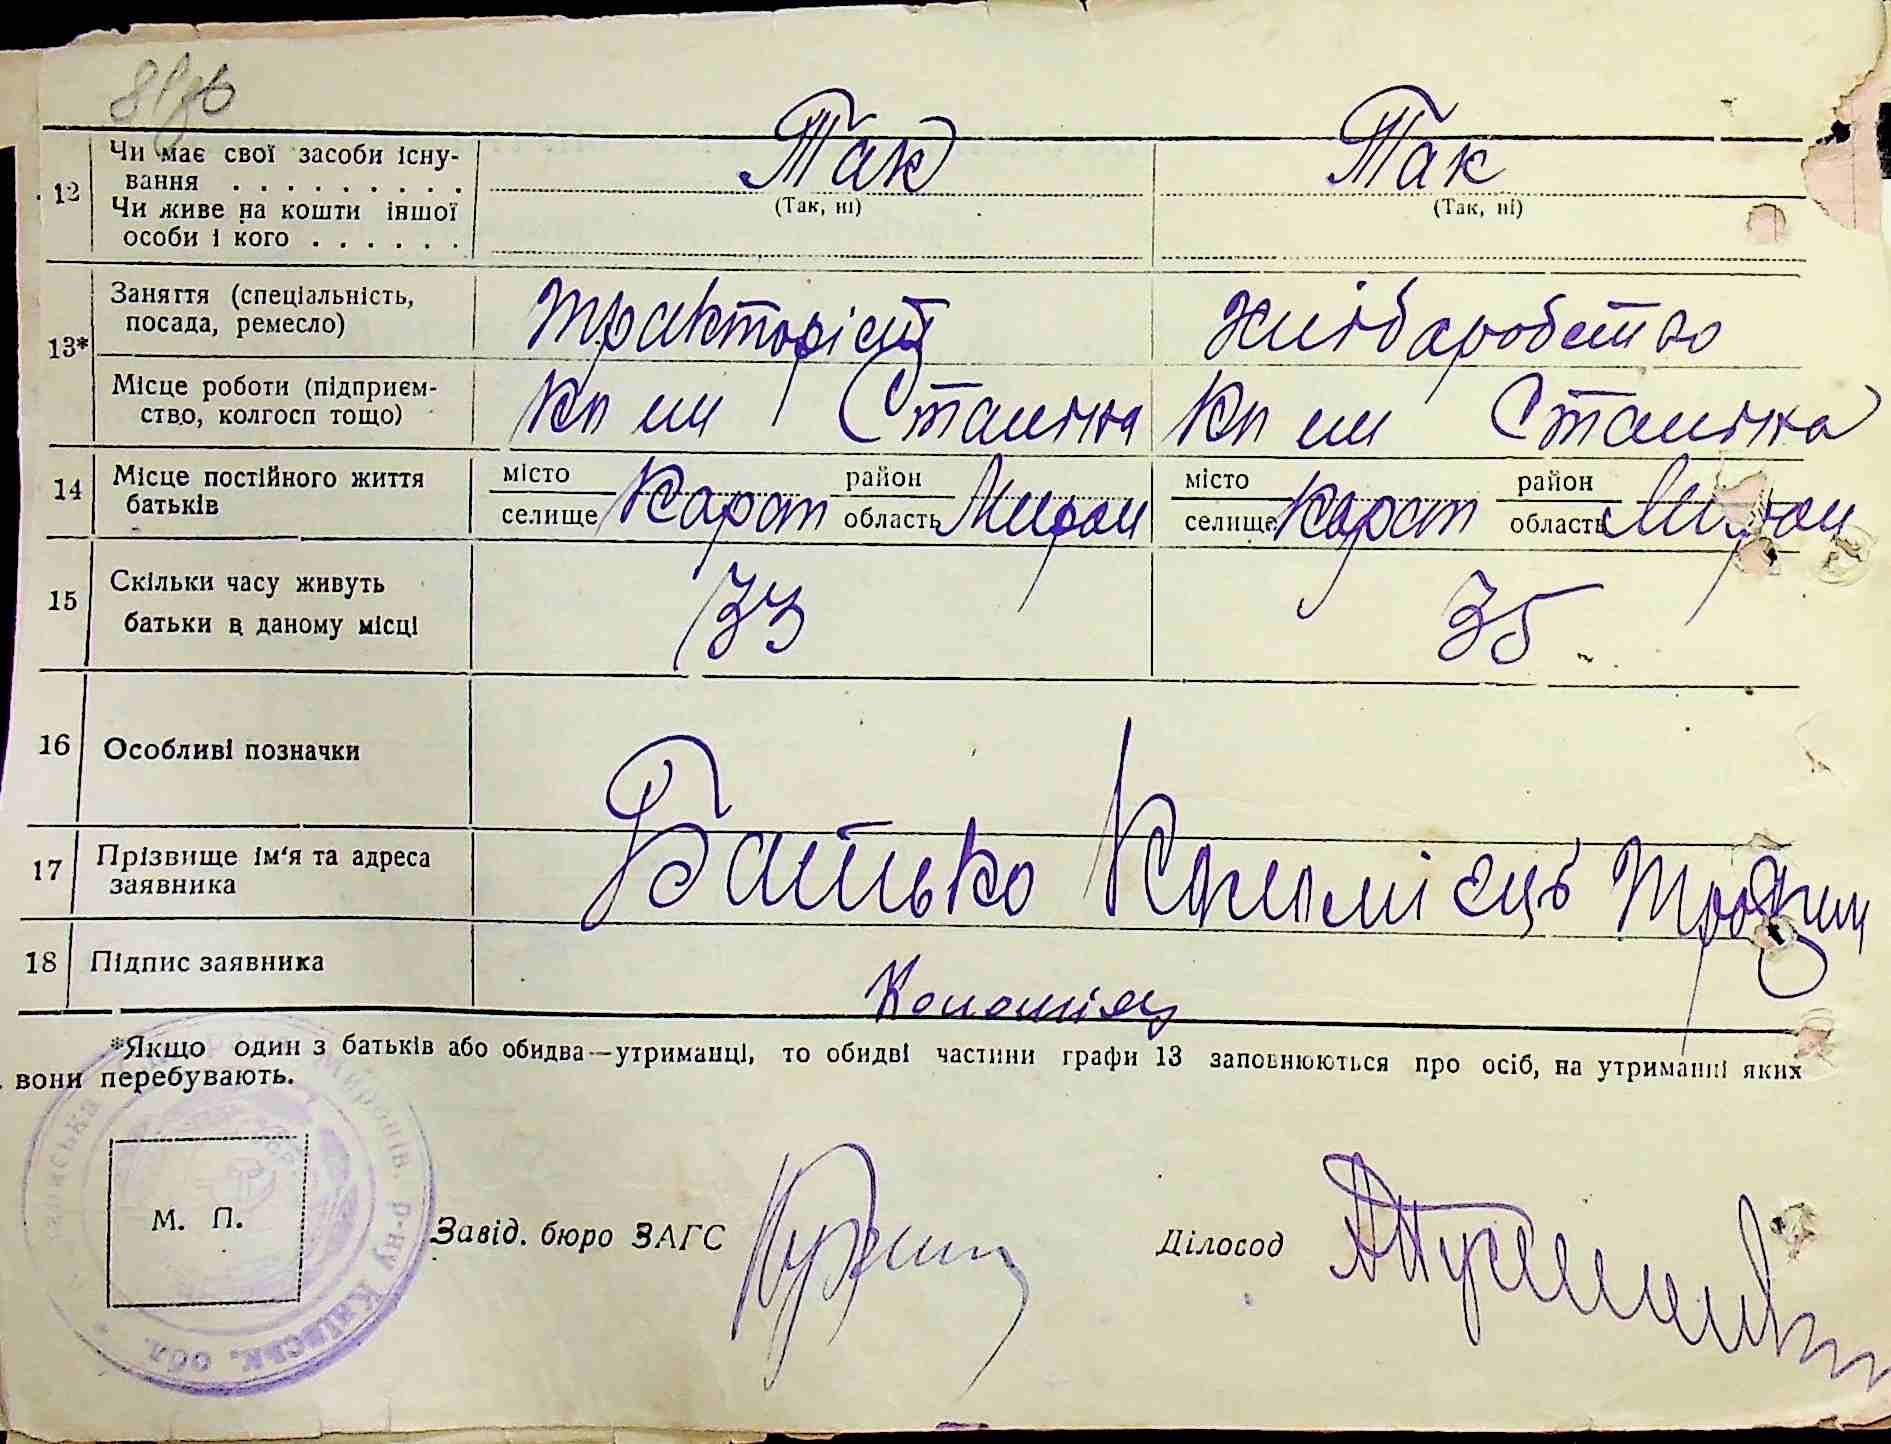 12 Чи має свої засоби існу- Так Так
вання . . . . . . . . . (Так, ні) (Так, ні)
Чи живе на кошти іншої
особи і кого . . . . . .
13* Заняття (спеціальність, Тракторіст Хліборобство
посада, ремесло)
Місце роботи (підприєм- Кп им Сталіна Кп им Сталіна
ство, колгосп тощо)
14 Місце постійного життя місто район місто район
батьків селище Карап область Мирон селище Карап область Мирон
15 Скільки часу живуть 33 35
батьки в даному місці
16 Особливі позначки
17 Прізвище ім'я та адреса Батько Коломієць
заявника
18 Підпис заявника Коломієц
*Якщо один з батьків або обидва—утриманці, то обидві частини графи 13 заповнюються про осіб, на утриманні яких
вони перебувають.
Миронів. р-ну Київськ. обл.
М. П.
Завід. бюро ЗАГС Діловод